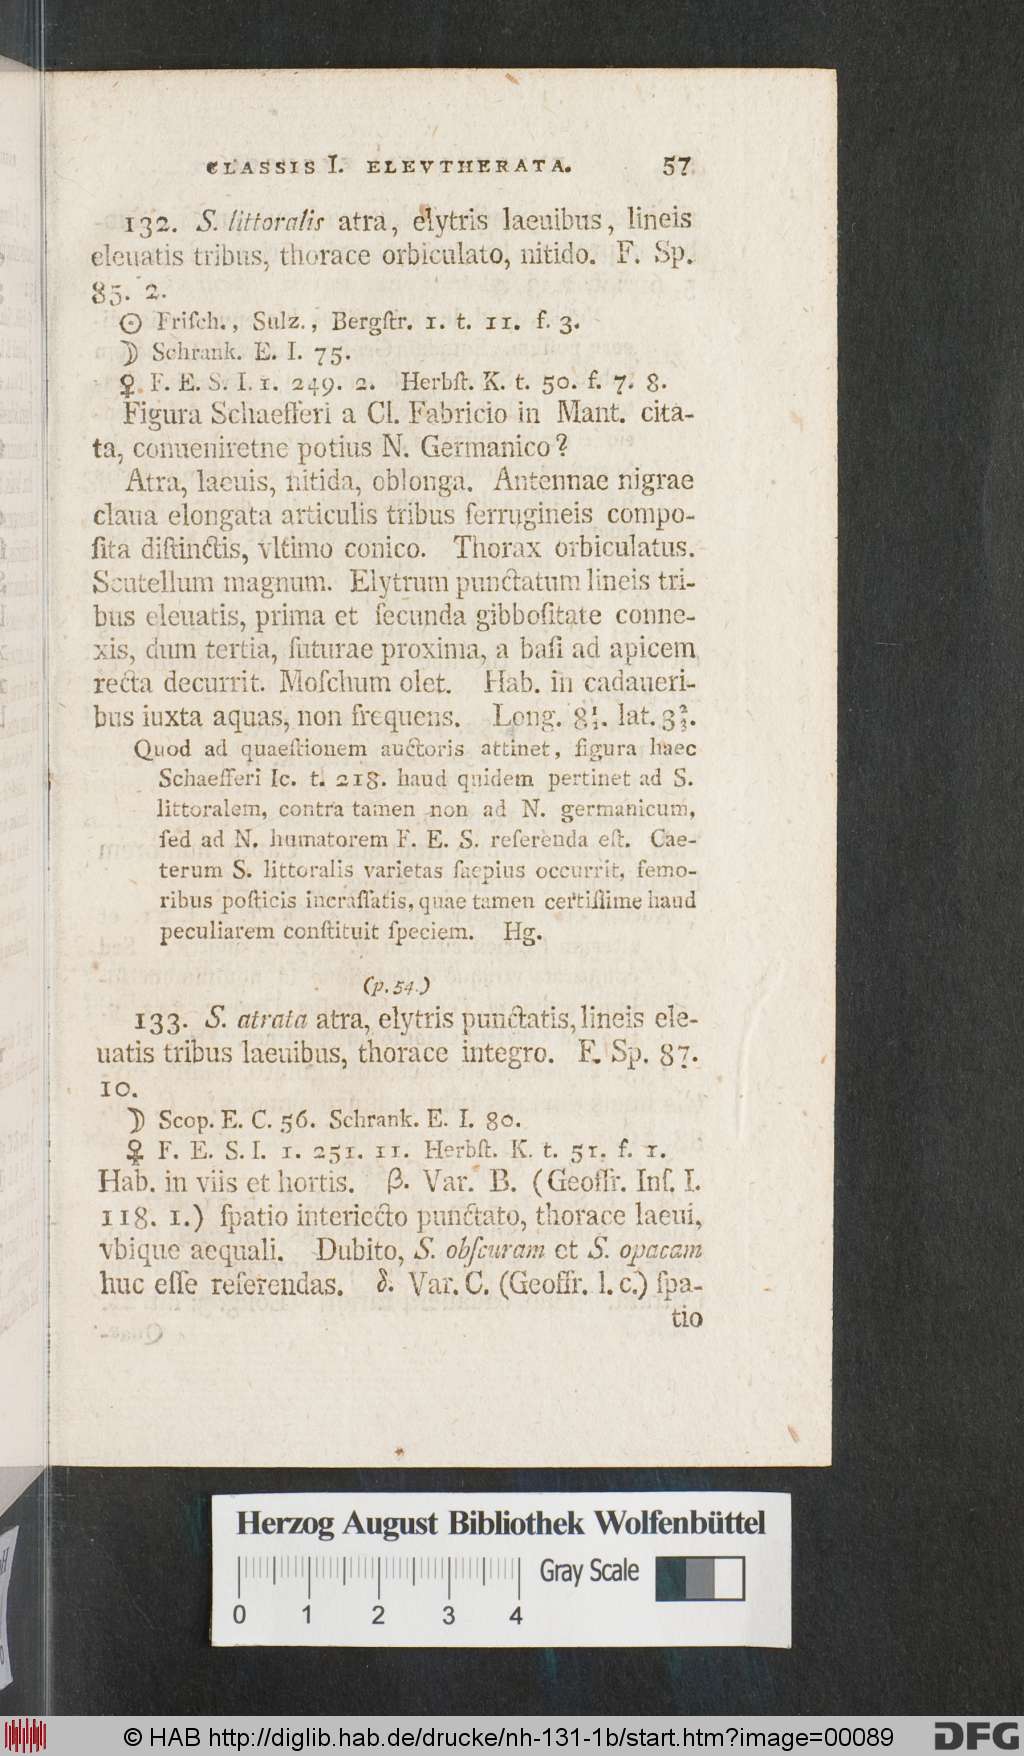 CLASSIS I. ELEVTHERATA. 57
132. S. littoralis atra, elytris laeuibus, lineis
eleuatis tribus, thorace orbiculato, nitido. F. Sp.
85. 2.
☉ Friſch., Sulz., Bergſtr. 1. t. 11. f. 3.
☽ Schrank. E. I. 75.
♀ F. E. S. I. 1. 249. 2. Herbſt. K. t. 50. f. 7. 8.
Figura Schaefferi a Cl. Fabricio in Mant. cita-
ta, conueniretne potius N. Germanico?
Atra, laeuis, nitida, oblonga. Antennae nigrae
claua elongata articulis tribus ferrugineis compo-
ſita diſtinctis, vltimo conico. Thorax orbiculatus.
Scutellum magnum. Elytrum punctatum lineis tri-
bus eleuatis, prima et ſecunda gibboſitate conne-
xis, dum tertia, ſuturae proxima, a baſi ad apicem
recta decurrit. Moſchum olet. Hab. in cadaueri-
bus iuxta aquas, non frequens. Long. 8¼. lat. 3⅔.
Quod ad quaeſtionem auctoris attinet, figura haec
Schaefferi Ic. t. 218. haud quidem pertinet ad S.
littoralem, contra tamen non ad N. germanicum,
ſed ad N. humatorem F. E. S. referenda eſt. Cae-
terum S. littoralis varietas ſaepius occurrit, femo-
ribus poſticis incraſſatis, quae tamen certiſſime haud
peculiarem conſtituit ſpeciem. Hg.
(p. 54.)
133. S. atrata atra, elytris punctatis, lineis ele-
uatis tribus laeuibus, thorace integro. F. Sp. 87.
10.
☽ Scop. E. C. 56. Schrank. E. I. 80.
♀ F. E. S. I. 1. 251. 11. Herbſt. K. t. 51. f. 1.
Hab. in viis et hortis. β. Var. B. (Geoffr. Inſ. I.
118. 1.) ſpatio interiecto punctato, thorace laeui,
vbique aequali. Dubito, S. obſcuram et S. opacam
huc eſſe referendas. δ. Var. C. (Geoffr. l. c.) ſpa-
tio
Herzog August Bibliothek Wolfenbüttel
Gray Scale
0 1 2 3 4
© HAB http://diglib.hab.de/drucke/nh-131-1b/start.htm?image=00089
DFG